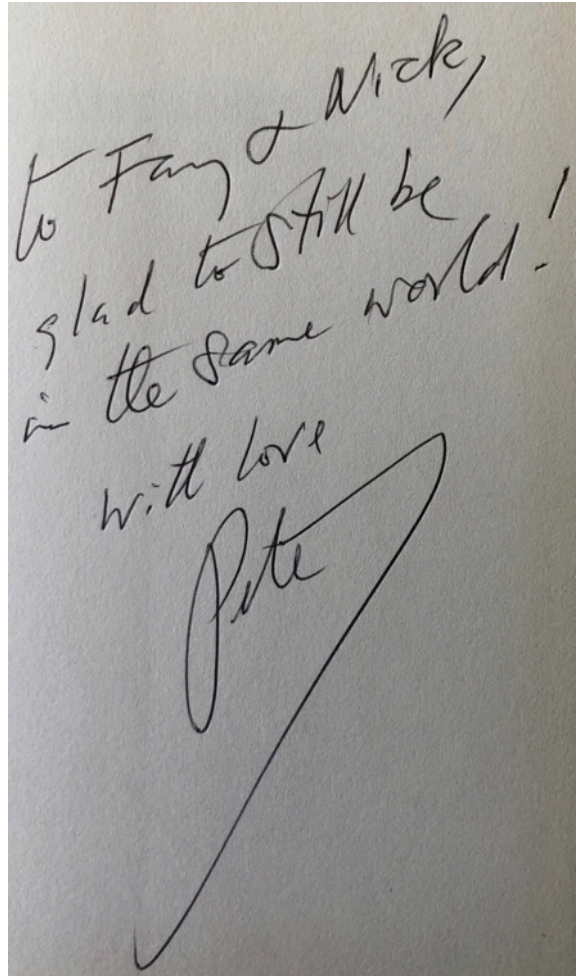 to Fay & Nick,
glad to still be
in the same world!
with love
Pete